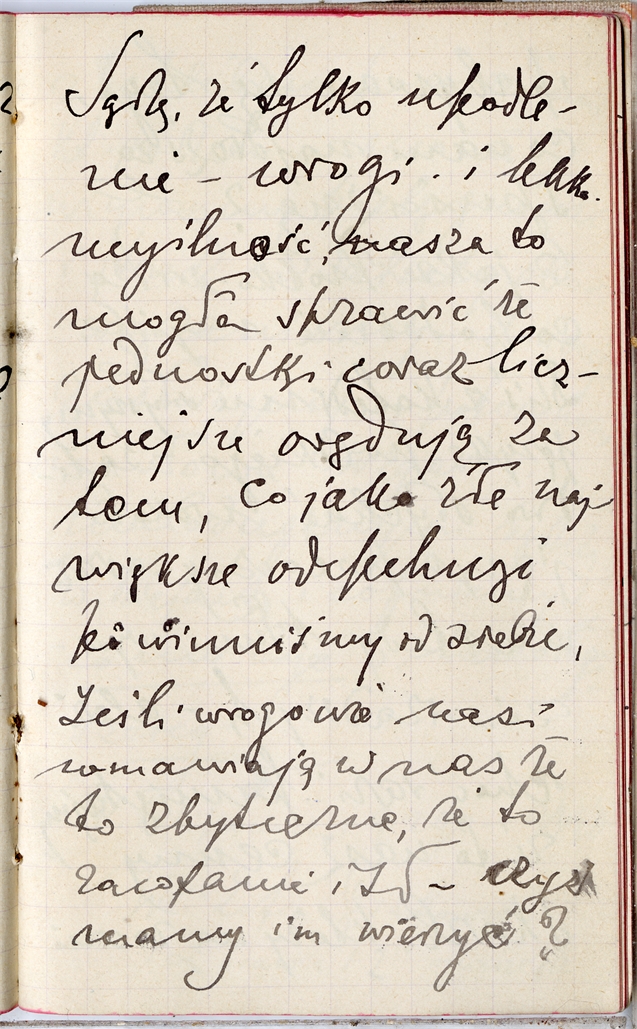 Sądzę, że tylko upodle-
nie - wrogi. i lekko
myślność, nasza to
mogła sprawić że
jednostki coraz licz-
niejsze orędują za
tem, co jako złe naj
większe odepchnąć
powinniśmy od siebie,
Jeśli wrogowie nasi
wmawiają w nas że
to zbyteczne, że to
zacofanie i td - czyż
mamy im wierzyć?